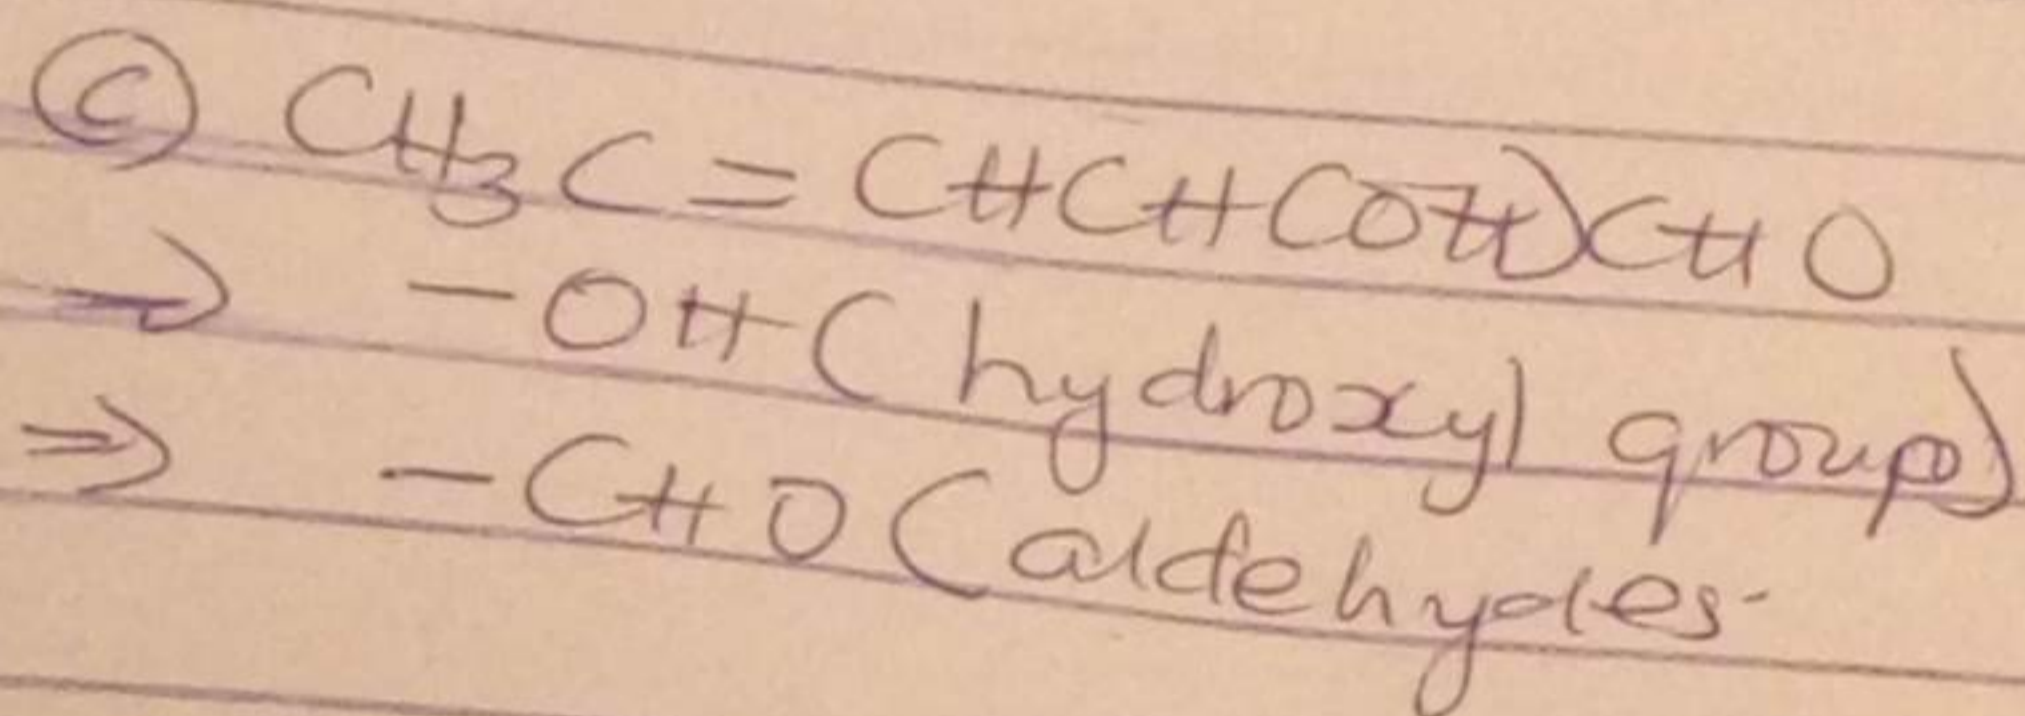 (c) CH₃C=CHCH(OH)CHO
→ -OH (hydroxyl group)
⇒ -CHO (aldehydes.